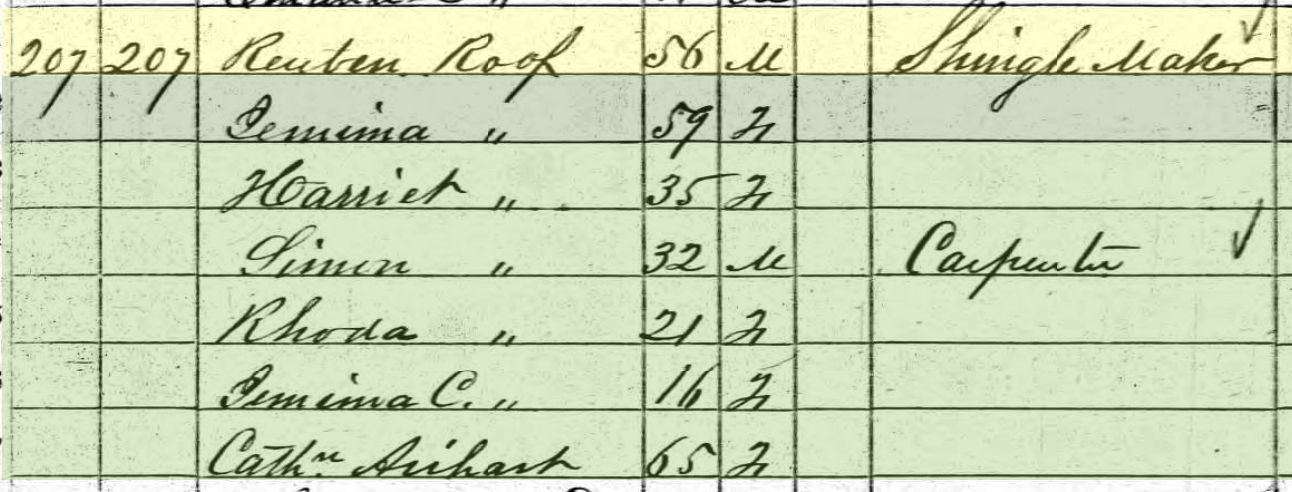 207 207 Reuben Roof 56 M Shingle Maker
Jemima " 59 F
Harriet " 35 F
Simon " 32 M Carpenter
Rhoda " 21 F
Jemima C. " 16 F
Cathn Airhart 65 F